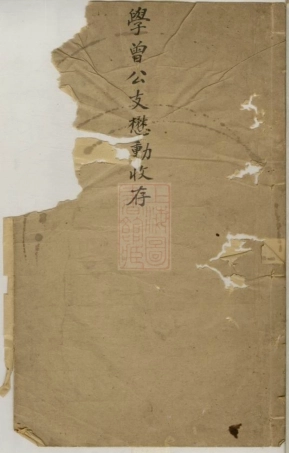 學曾公支懋勳收存